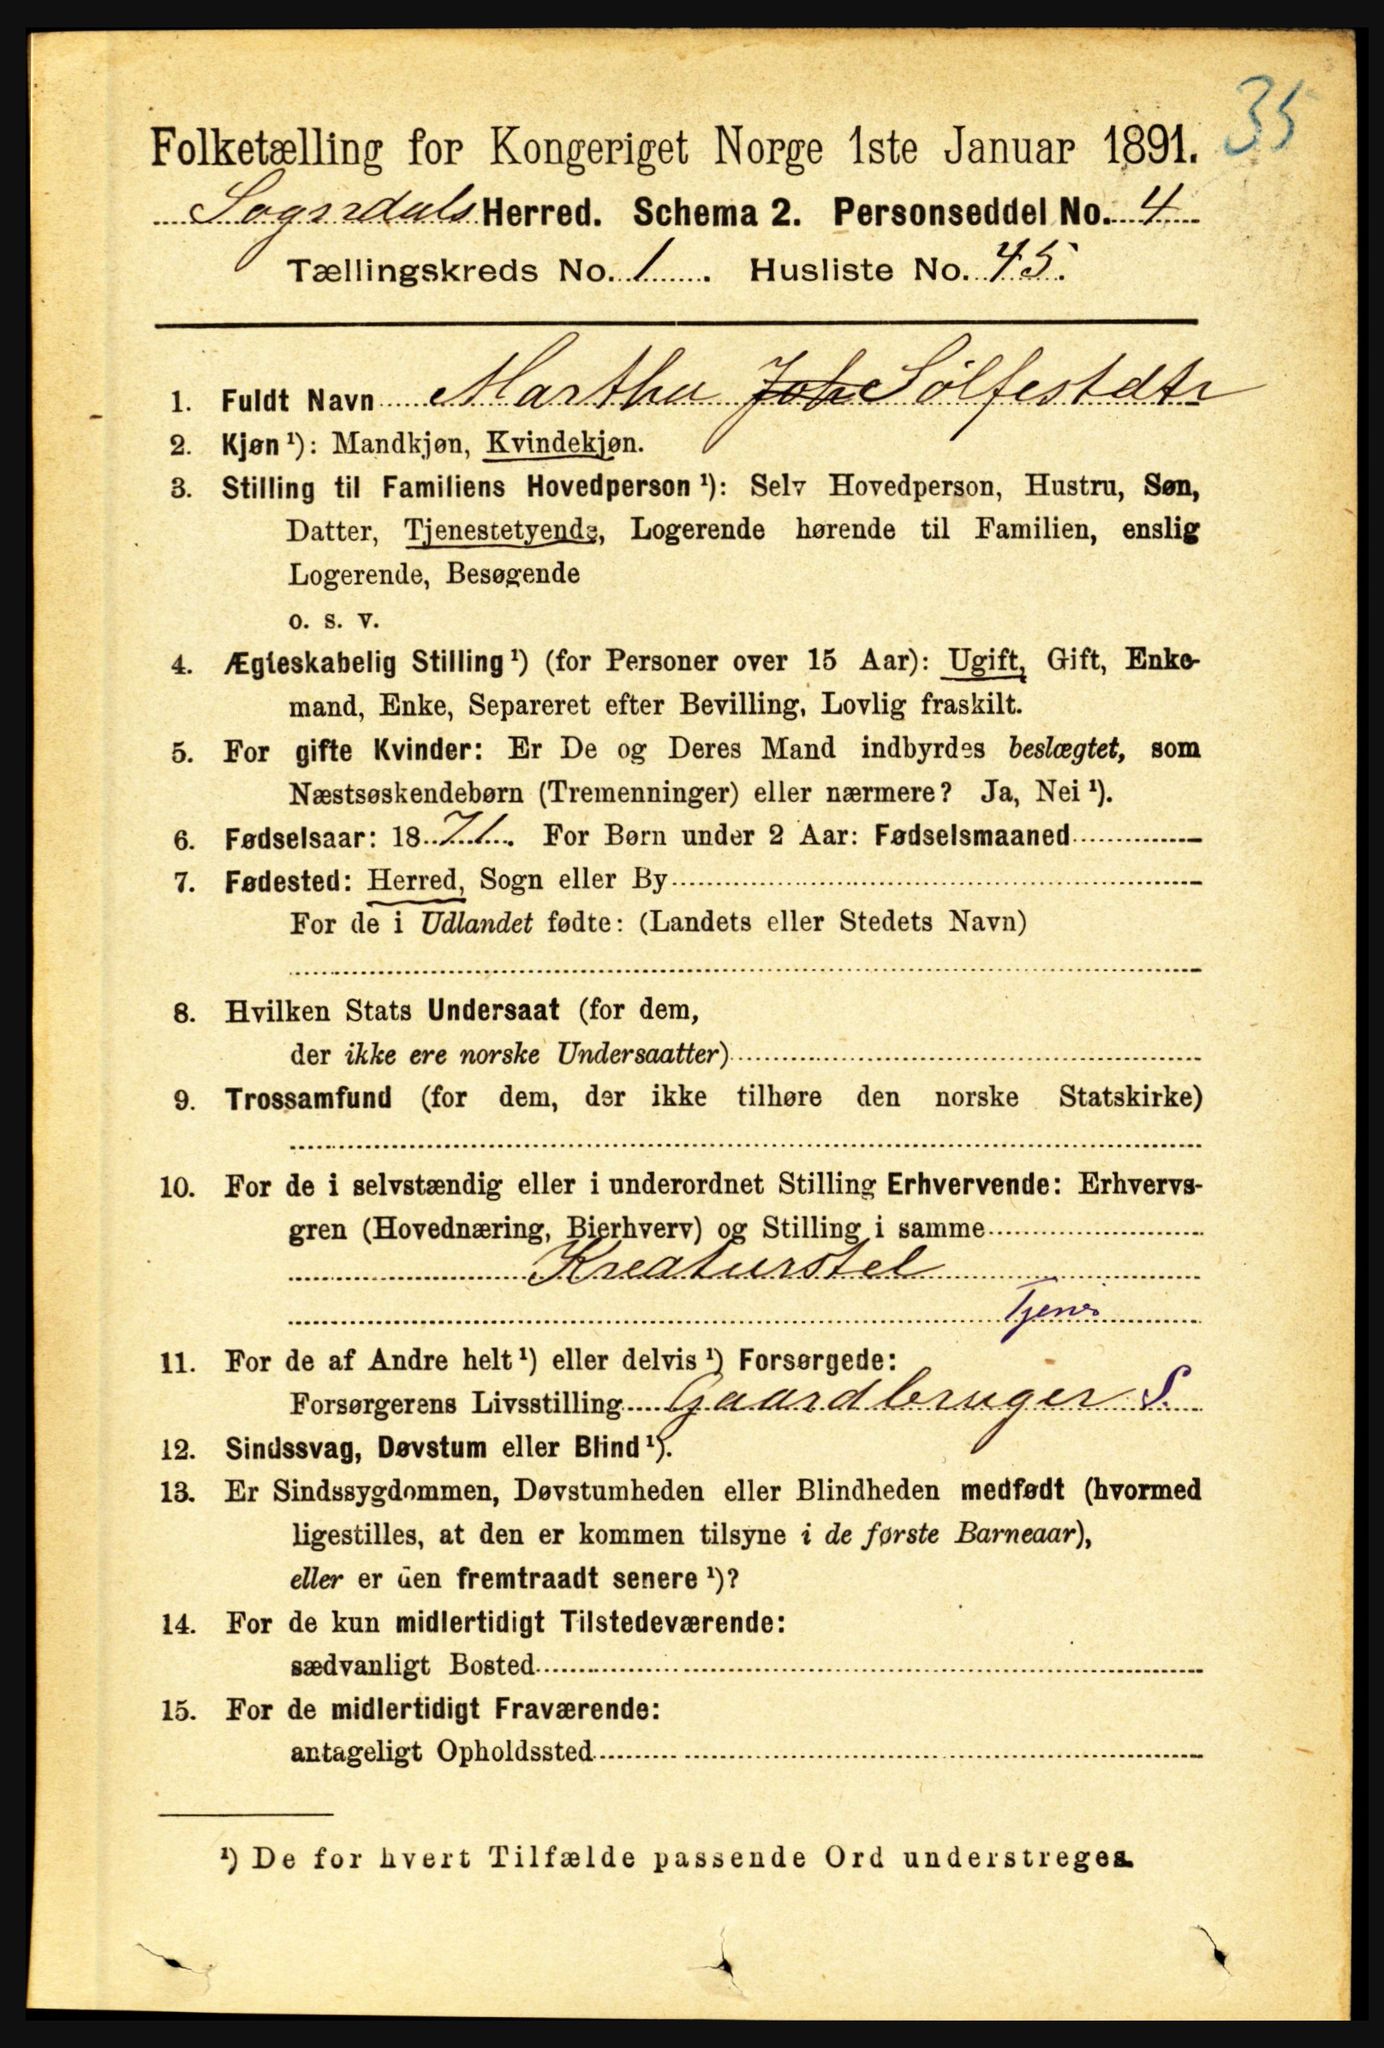 35
Folketælling for Kongeriget Norge 1ste Januar 1891.
Sogndals Herred. Schema 2. Personseddel No. 4
Tællingskreds No. 1. Husliste No. 45.
1. Fuldt Navn Martha Joh Sølfestdtr
2. Kjøn ¹): Mandkjøn, Kvindekjøn.
3. Stilling til Familiens Hovedperson ¹): Selv Hovedperson, Hustru, Søn,
Datter, Tjenestetyende, Logerende hørende til Familien, enslig
Logerende, Besøgende
o. s. v.
4. Ægteskabelig Stilling ¹) (for Personer over 15 Aar): Ugift, Gift, Enke-
mand, Enke, Separeret efter Bevilling, Lovlig fraskilt.
5. For gifte Kvinder: Er De og Deres Mand indbyrdes beslægtet, som
Næstsøskendebørn (Tremenninger) eller nærmere? Ja, Nei ¹).
6. Fødselsaar: 1871. For Børn under 2 Aar: Fødselsmaaned
7. Fødested: Herred, Sogn eller By
For de i Udlandet fødte: (Landets eller Stedets Navn)
8. Hvilken Stats Undersaat (for dem,
der ikke ere norske Undersaatter)
9. Trossamfund (for dem, der ikke tilhøre den norske Statskirke)
10. For de i selvstændig eller i underordnet Stilling Erhvervende: Erhvervs-
gren (Hovednæring, Bierhverv) og Stilling i samme
Kreaturstel
Tjener
11. For de af Andre helt ¹) eller delvis ¹) Forsørgede:
Forsørgerens Livsstilling Gaardbruger S.
12. Sindssvag, Døvstum eller Blind ¹).
13. Er Sindssygdommen, Døvstumheden eller Blindheden medfødt (hvormed
ligestilles, at den er kommen tilsyne i de første Barneaar),
eller er den fremtraadt senere ¹)?
14. For de kun midlertidigt Tilstedeværende:
sædvanligt Bosted
15. For de midlertidigt Fraværende:
antageligt Opholdssted
¹) De for hvert Tilfælde passende Ord understreges.